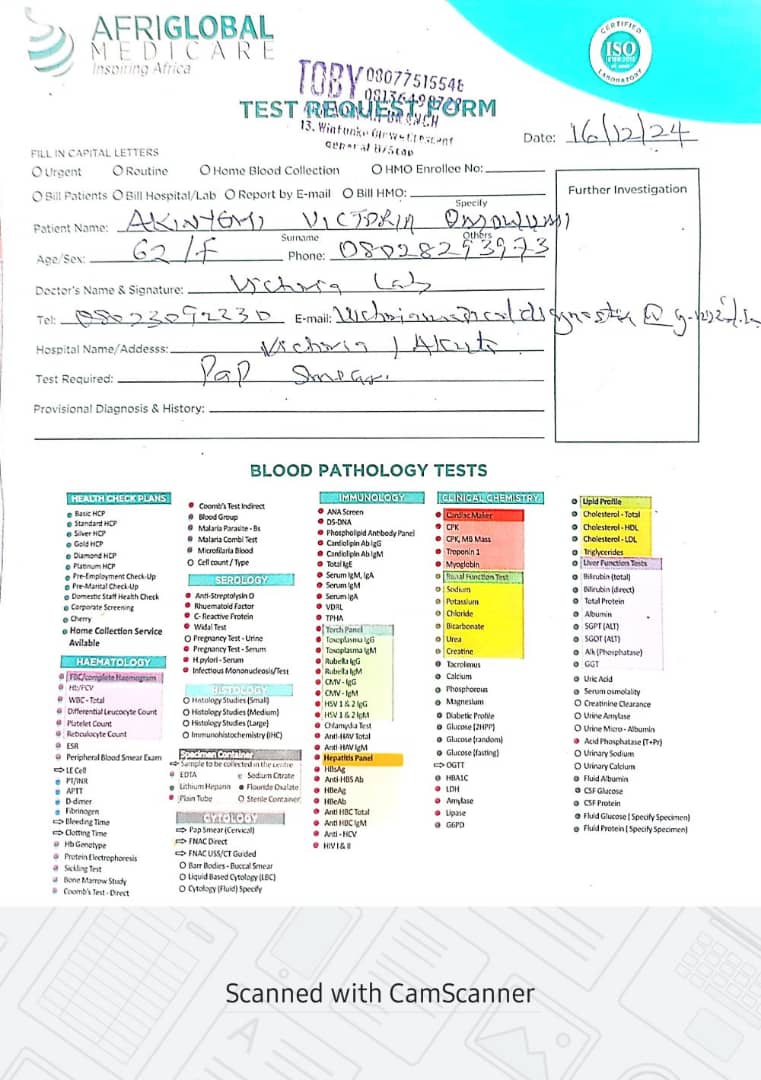 AFRIGLOBAL
MEDICARE
Inspiring Africa
CERTIFIED
ISO
LABORATORY
TOBY 08077515546
TEST REQUEST FORM
General B/Stop
Date: 16/12/24
FILL IN CAPITAL LETTERS
Urgent Routine Home Blood Collection HMO Enrollee No:
Bill Patients Bill Hospital/Lab Report by E-mail Bill HMO:
Specify
Further Investigation
Patient Name: AKINYEMI VICTORIA OMOWUMI
Surname Others
Age/Sex: 62/F Phone: 08028293973
Doctor's Name & Signature: Victoria Lab
Tel: 08023092230 E-mail:
Hospital Name/Addesss: Victoria / Akute
Test Required: Pap Smear.
Provisional Diagnosis & History:
BLOOD PATHOLOGY TESTS
HEALTH CHECK PLANS
Basic HCP
Standard HCP
Silver HCP
Gold HCP
Diamond HCP
Platinum HCP
Pre-Employment Check-Up
Pre-Marital Check-Up
Domestic Staff Health Check
Corporate Screening
Cherry
Home Collection Service
Avilable
HAEMATOLOGY
FBC/complete Haemogram
Hb/PCV
WBC - Total
Differential Leucocyte Count
Platelet Count
Reticulocyte Count
ESR
Peripheral Blood Smear Exam
LE Cell
PT/INR
APTT
D-dimer
Fibrinogen
Bleeding Time
Clotting Time
Hb Genotype
Protein Electrophoresis
Sickling Test
Bone Marrow Study
Coomb's Test - Direct
Coomb's Test Indirect
Blood Group
Malaria Parasite - Bs
Malaria Combi Test
Microfilaria Blood
Cell count / Type
SEROLOGY
Anti-Streptolysin O
Rhuematoid Factor
C- Reactive Protein
Widal Test
Pregnancy Test - Urine
Pregnancy Test - Serum
H.pylori - Serum
Infectious Mononucleosis/Test
HISTOLOGY
Histology Studies (Small)
Histology Studies (Medium)
Histology Studies (Large)
Immunohistochemistry (IHC)
Specimen Container
Sample to be collected in the centre
EDTA Sodium Citrate
Lithium Heparin Flouride Oxalate
Plain Tube Sterile Container
CYTOLOGY
Pap Smear (Cervical)
FNAC Direct
FNAC USS/CT Guided
Barr Bodies - Buccal Smear
Liquid Based Cytology (LBC)
Cytology (Fluid) Specify
IMMUNOLOGY
ANA Screen
DS-DNA
Phospholipid Antibody Panel
Cardiolipin Ab IgG
Cardiolipin Ab IgM
Total IgE
Serum IgM, IgA
Serum IgM
Serum IgA
VDRL
TPHA
Torch Panel
Toxoplasma IgG
Toxoplasma IgM
Rubella IgG
Rubella IgM
CMV - IgG
CMV - IgM
HSV 1 & 2 IgG
HSV 1 & 2 IgM
Chlamydia Test
Anti-HAV Total
Anti-HAV IgM
Hepatitis Panel
HBsAg
Anti-HBS Ab
HBeAg
HBeAb
Anti HBC Total
Anti HBC IgM
Anti - HCV
HIV I & II
CLINICAL CHEMISTRY
Cardiac Maker
CPK
CPK, MB Mass
Troponin 1
Myoglobin
Renal Function Test
Sodium
Potassium
Chloride
Bicarbonate
Urea
Creatine
Tacrolimus
Calcium
Phosphorous
Magnesium
Diabetic Profile
Glucose (2HPP)
Glucose (random)
Glucose (fasting)
OGTT
HBA1C
LDH
Amylase
Lipase
G6PD
Lipid Profile
Cholesterol - Total
Cholesterol - HDL
Cholesterol - LDL
Triglycerides
Liver Function Tests
Bilirubin (total)
Bilirubin (direct)
Total Protein
Albumin
SGPT (ALT)
SGOT (ALT)
Alk (Phosphatase)
GGT
Uric Acid
Serum osmolality
Creatinine Clearance
Urine Amylase
Urine Micro - Albumin
Acid Phosphatase (T+Pr)
Urinary Sodium
Urinary Calcium
Fluid Albumin
CSF Glucose
CSF Protein
Fluid Glucose ( Specify Specimen)
Fluid Protein ( Specify Specimen)
Scanned with CamScanner